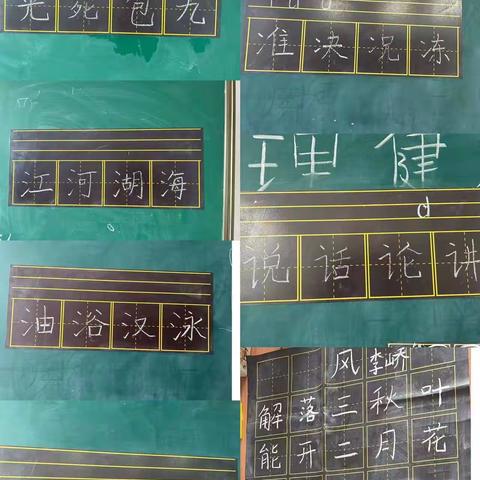 死 包 九
准 决 况 冻
江 河 湖 海
理 健
d
说 话 论 讲
油 浴 汉 泳
风 李峤
解 落 三 秋 叶
能 开 二 月 花